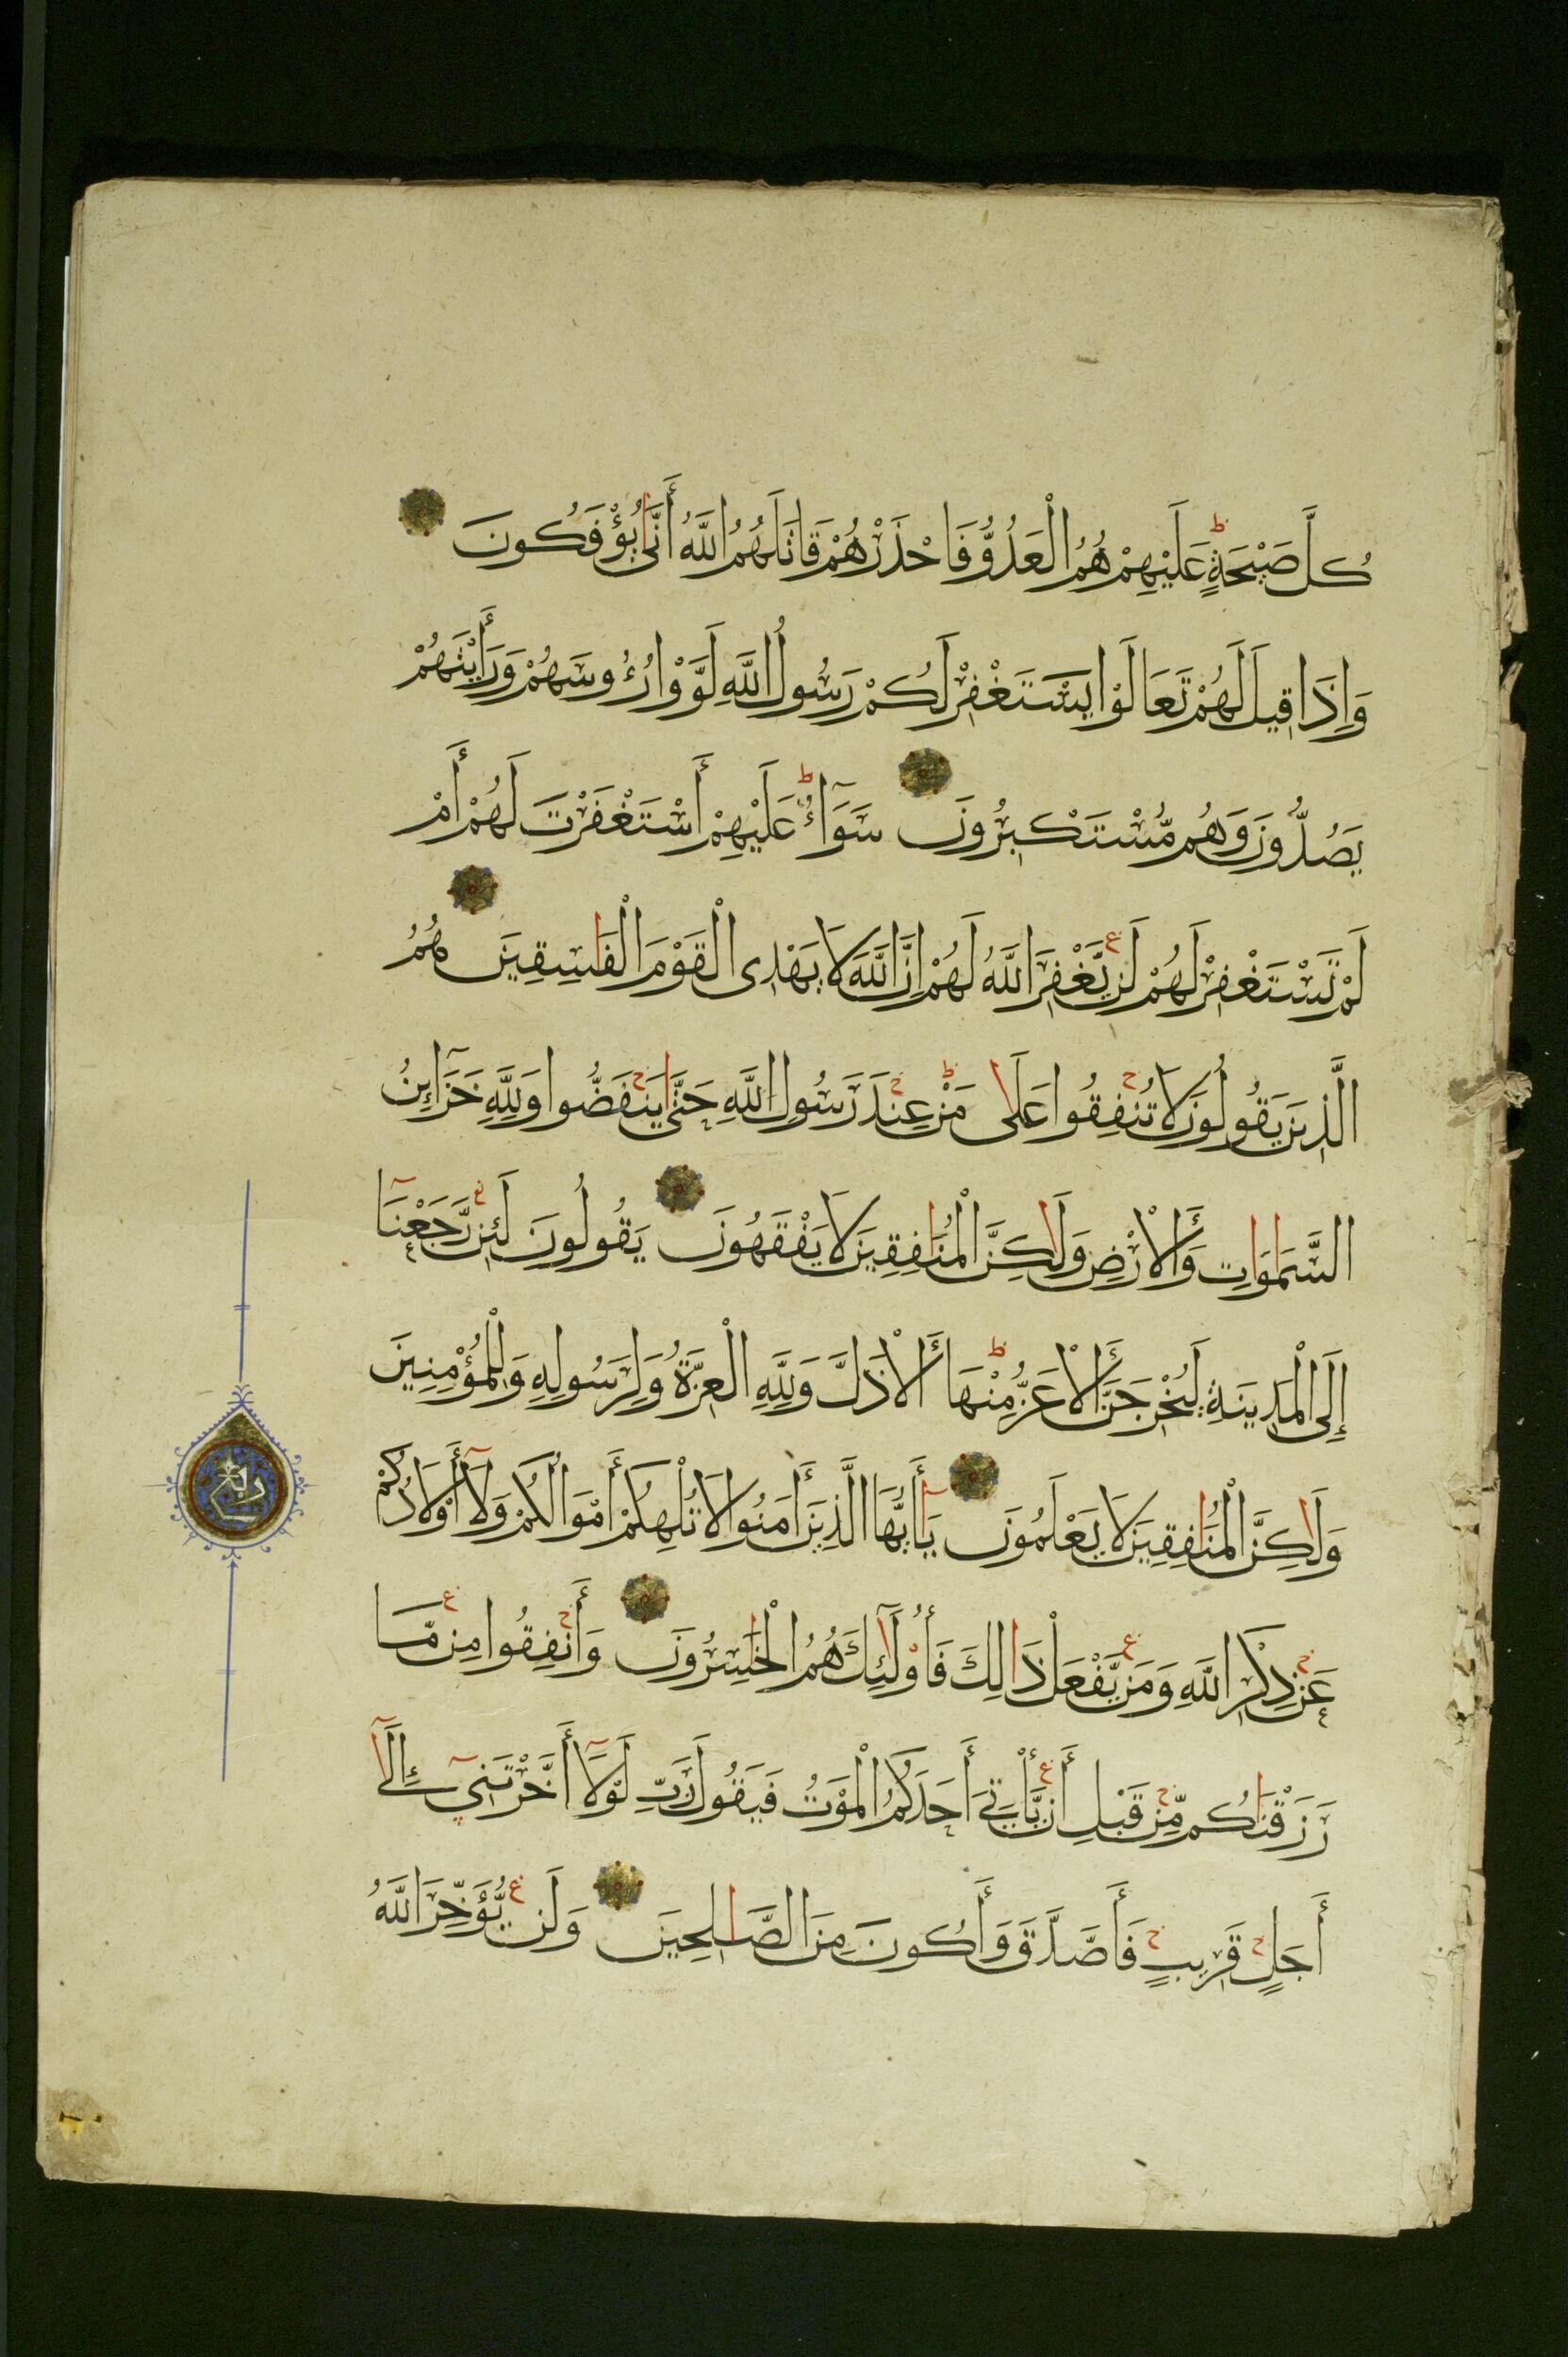 كُلَّ صَيْحَةٍ عَلَيْهِمْ هُمُ الْعَدُوُّ فَاحْذَرْهُمْ قَاتَلَهُمُ اللَّهُ أَنَّىٰ يُؤْفَكُونَ
وَإِذَا قِيلَ لَهُمْ تَعَالَوْا يَسْتَغْفِرْ لَكُمْ رَسُولُ اللَّهِ لَوَّوْا رُءُوسَهُمْ وَرَأَيْتَهُمْ
يَصُدُّونَ وَهُم مُّسْتَكْبِرُونَ سَوَآءٌ عَلَيْهِمْ أَسْتَغْفَرْتَ لَهُمْ أَمْ
لَمْ تَسْتَغْفِرْ لَهُمْ لَن يَّغْفِرَ اللَّهُ لَهُمْ إِنَّ اللَّهَ لَا يَهْدِى الْقَوْمَ الْفَاسِقِينَ هُمُ
الَّذِينَ يَقُولُونَ لَا تُنْفِقُوا عَلَىٰ مَنْ عِنْدَ رَسُولِ اللَّهِ حَتَّىٰ يَنْفَضُّوا وَلِلَّهِ خَزَآئِنُ
السَّمَاوَاتِ وَالْأَرْضِ وَلَٰكِنَّ الْمُنَافِقِينَ لَا يَفْقَهُونَ يَقُولُونَ لَئِن رَّجَعْنَآ
إِلَى الْمَدِينَةِ لَيُخْرِجَنَّ الْأَعَزُّ مِنْهَا الْأَذَلَّ وَلِلَّهِ الْعِزَّةُ وَلِرَسُولِهِ وَلِلْمُؤْمِنِينَ
وَلَٰكِنَّ الْمُنَافِقِينَ لَا يَعْلَمُونَ يَآأَيُّهَا الَّذِينَ أَمَنُوا لَا تُلْهِكُمْ أَمْوَالُكُمْ وَلَآ أَوْلَادُكُمْ
عَنْ ذِكْرِ اللَّهِ وَمَن يَّفْعَلْ ذَالِكَ فَأُوْلَٰٓئِكَ هُمُ الْخَاسِرُونَ وَأَنْفِقُوا مِن مَّا
رَزَقْنَاكُم مِّنْ قَبْلِ أَن يَّأْتِيَ أَحَدَكُمُ الْمَوْتُ فَيَقُولَ رَبِّ لَوْلَآ أَخَّرْتَنِيٓ إِلَىٰٓ
أَجَلٍ قَرِيبٍ فَأَصَّدَّقَ وَأَكُونَ مِنَ الصَّالِحِينَ وَلَن يُّؤَخِّرَ اللَّهُ